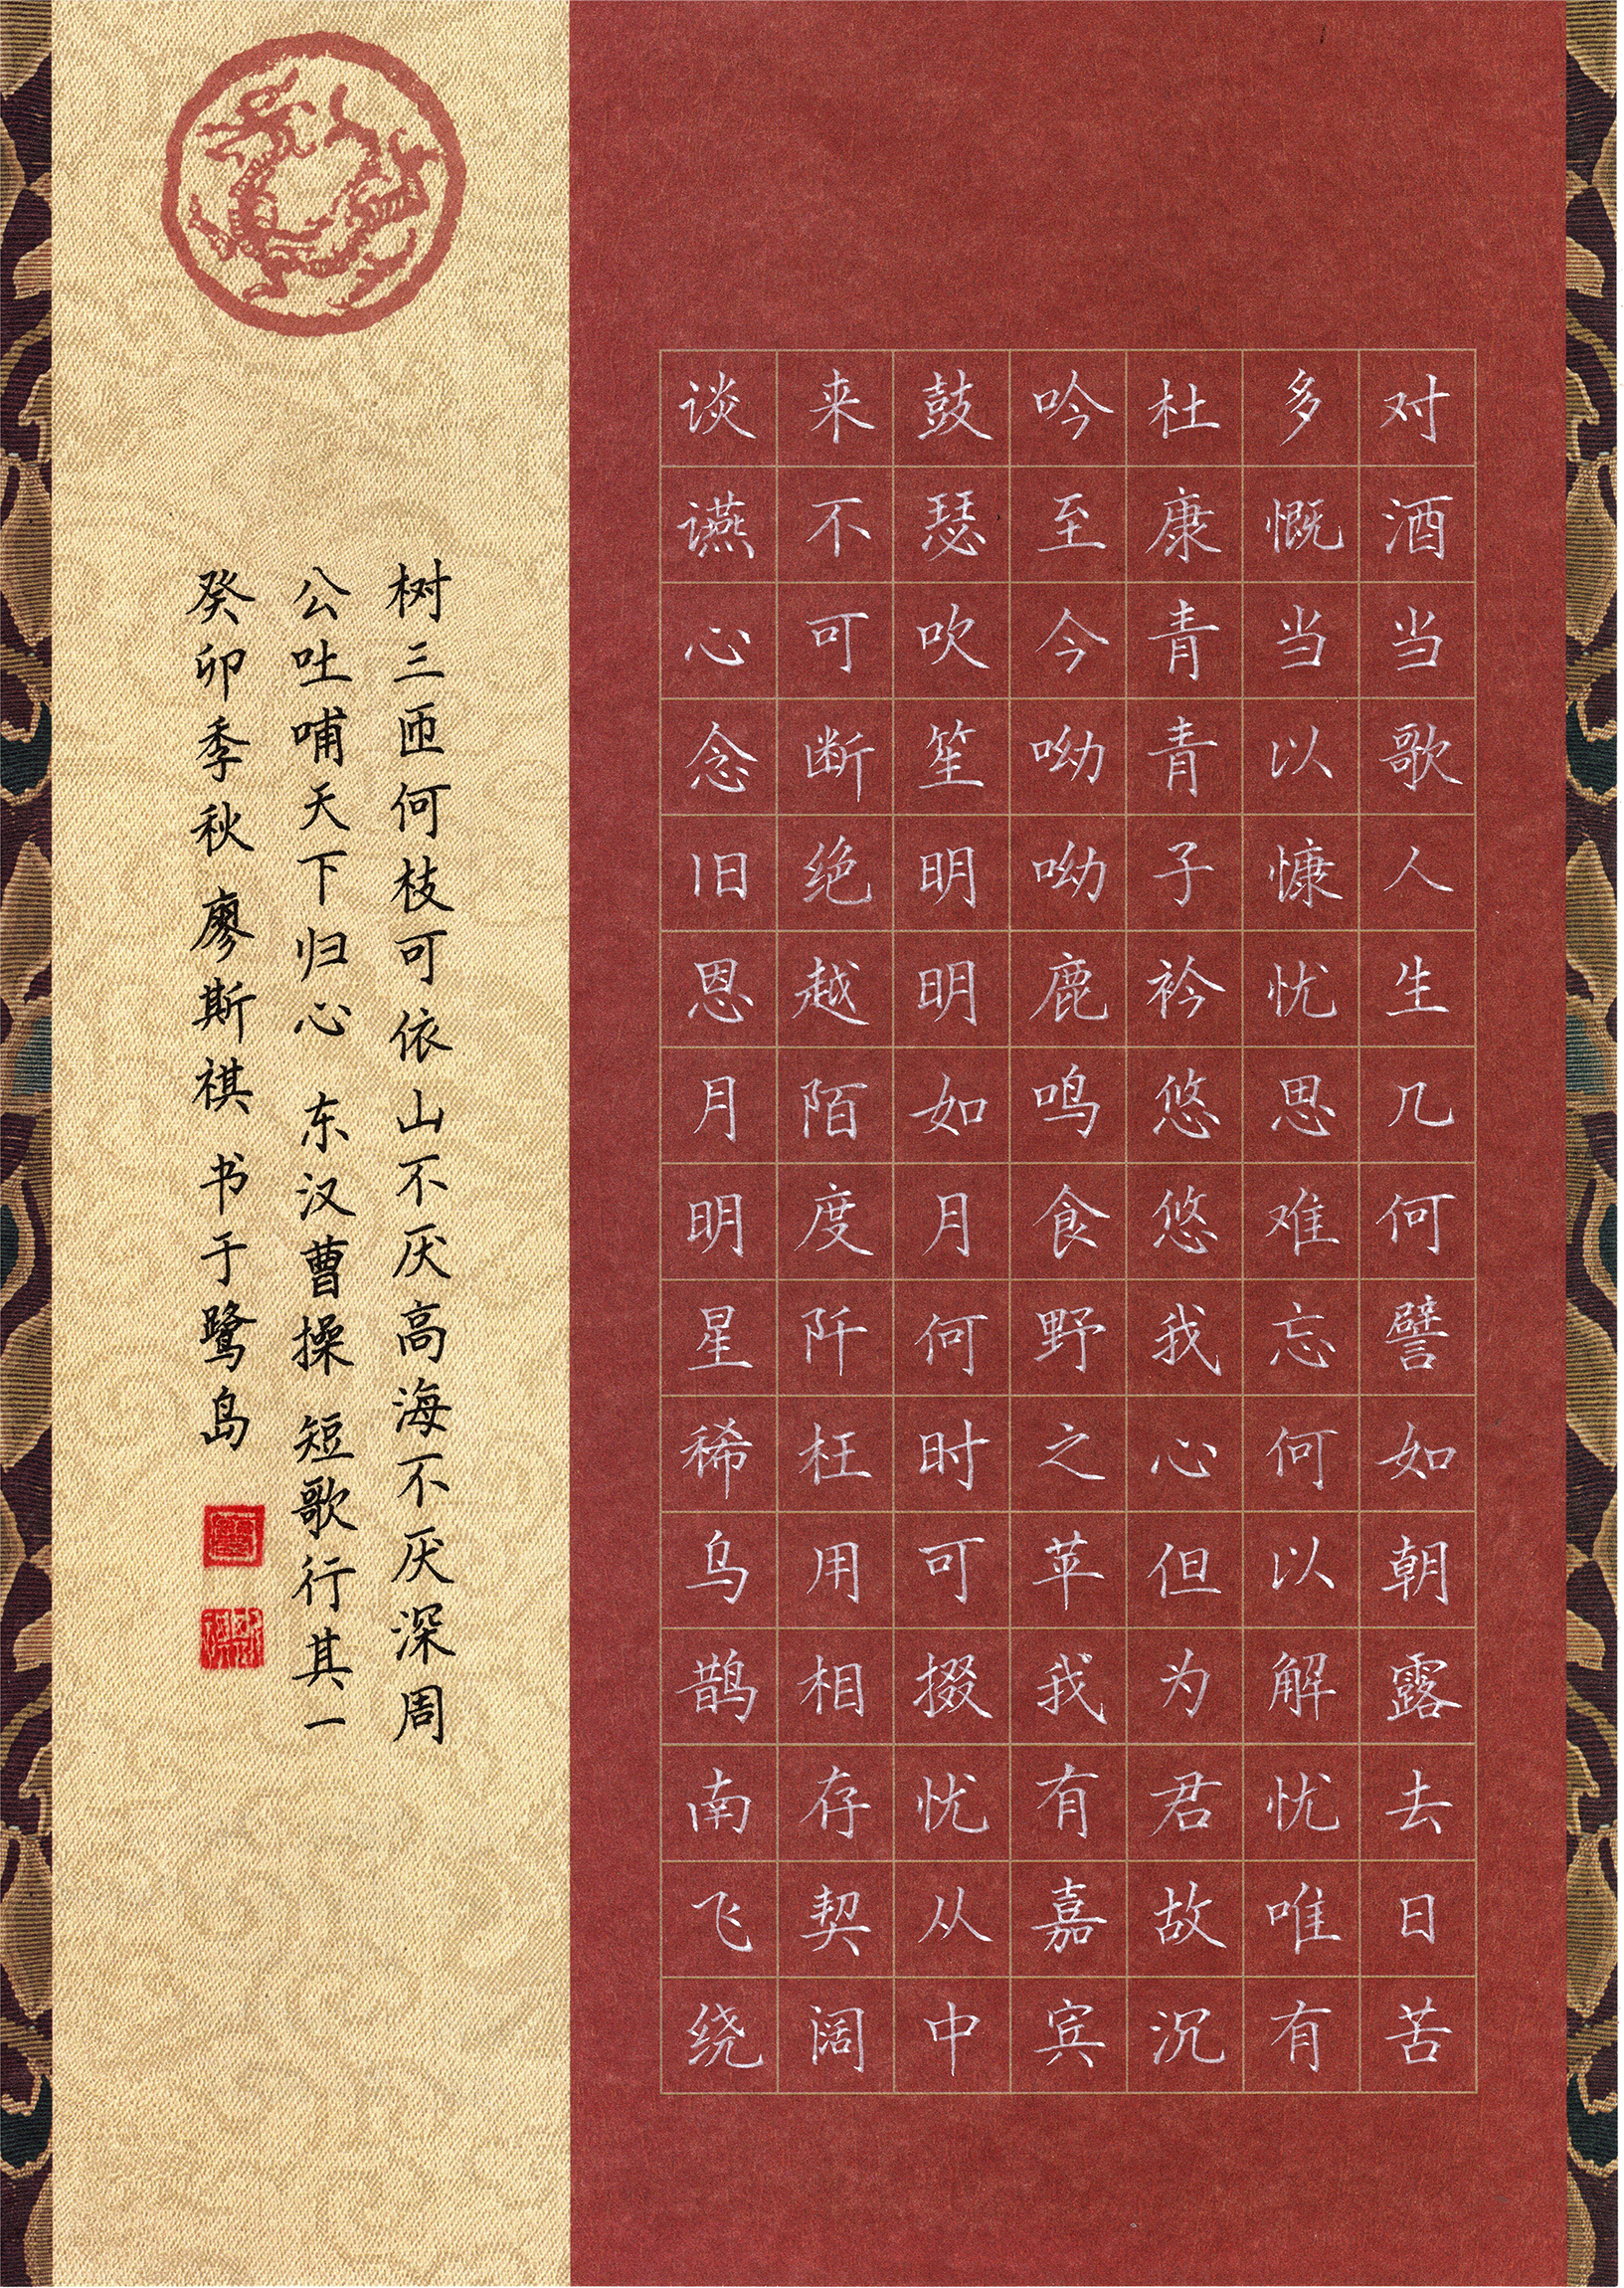 对酒当歌人生几何譬如朝露去日苦
多慨当以慷忧思难忘何以解忧唯有
杜康青青子衿悠悠我心但为君故沉
吟至今呦呦鹿鸣食野之苹我有嘉宾
鼓瑟吹笙明明如月何时可掇忧从中
来不可断绝越陌度阡枉用相存契阔
谈讌心念旧恩月明星稀乌鹊南飞绕
树三匝何枝可依山不厌高海不厌深周
公吐哺天下归心 东汉曹操 短歌行其一
癸卯季秋 廖斯祺 书于鹭岛